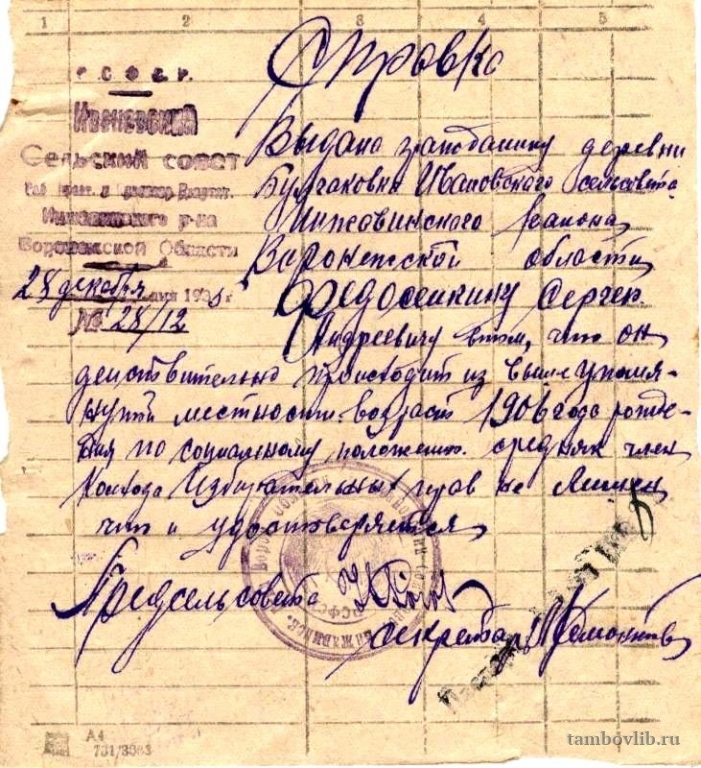 1 2 3 4 5
Справка
Р.С.Ф.С.Р.
Ивановский
Сельский совет
Инжавинского р-на
Воронежской Области
28 декабря 193
№ 28/12
Выдана гражданину деревни
Булгаковки Ивановского сельсовета
Инжавинского района
Воронежской области
Федосейкину Сергею
Андреевичу в том, что он
действительно происходит из выше упомя-
нутой местности возраст 1906 года рожде-
ния по социальному положению середняк член
колхоза Избирательных прав не лишен
что и удостоверяется
Предсельсовета
секретарь
А4
731/3063
tambovlib.ru